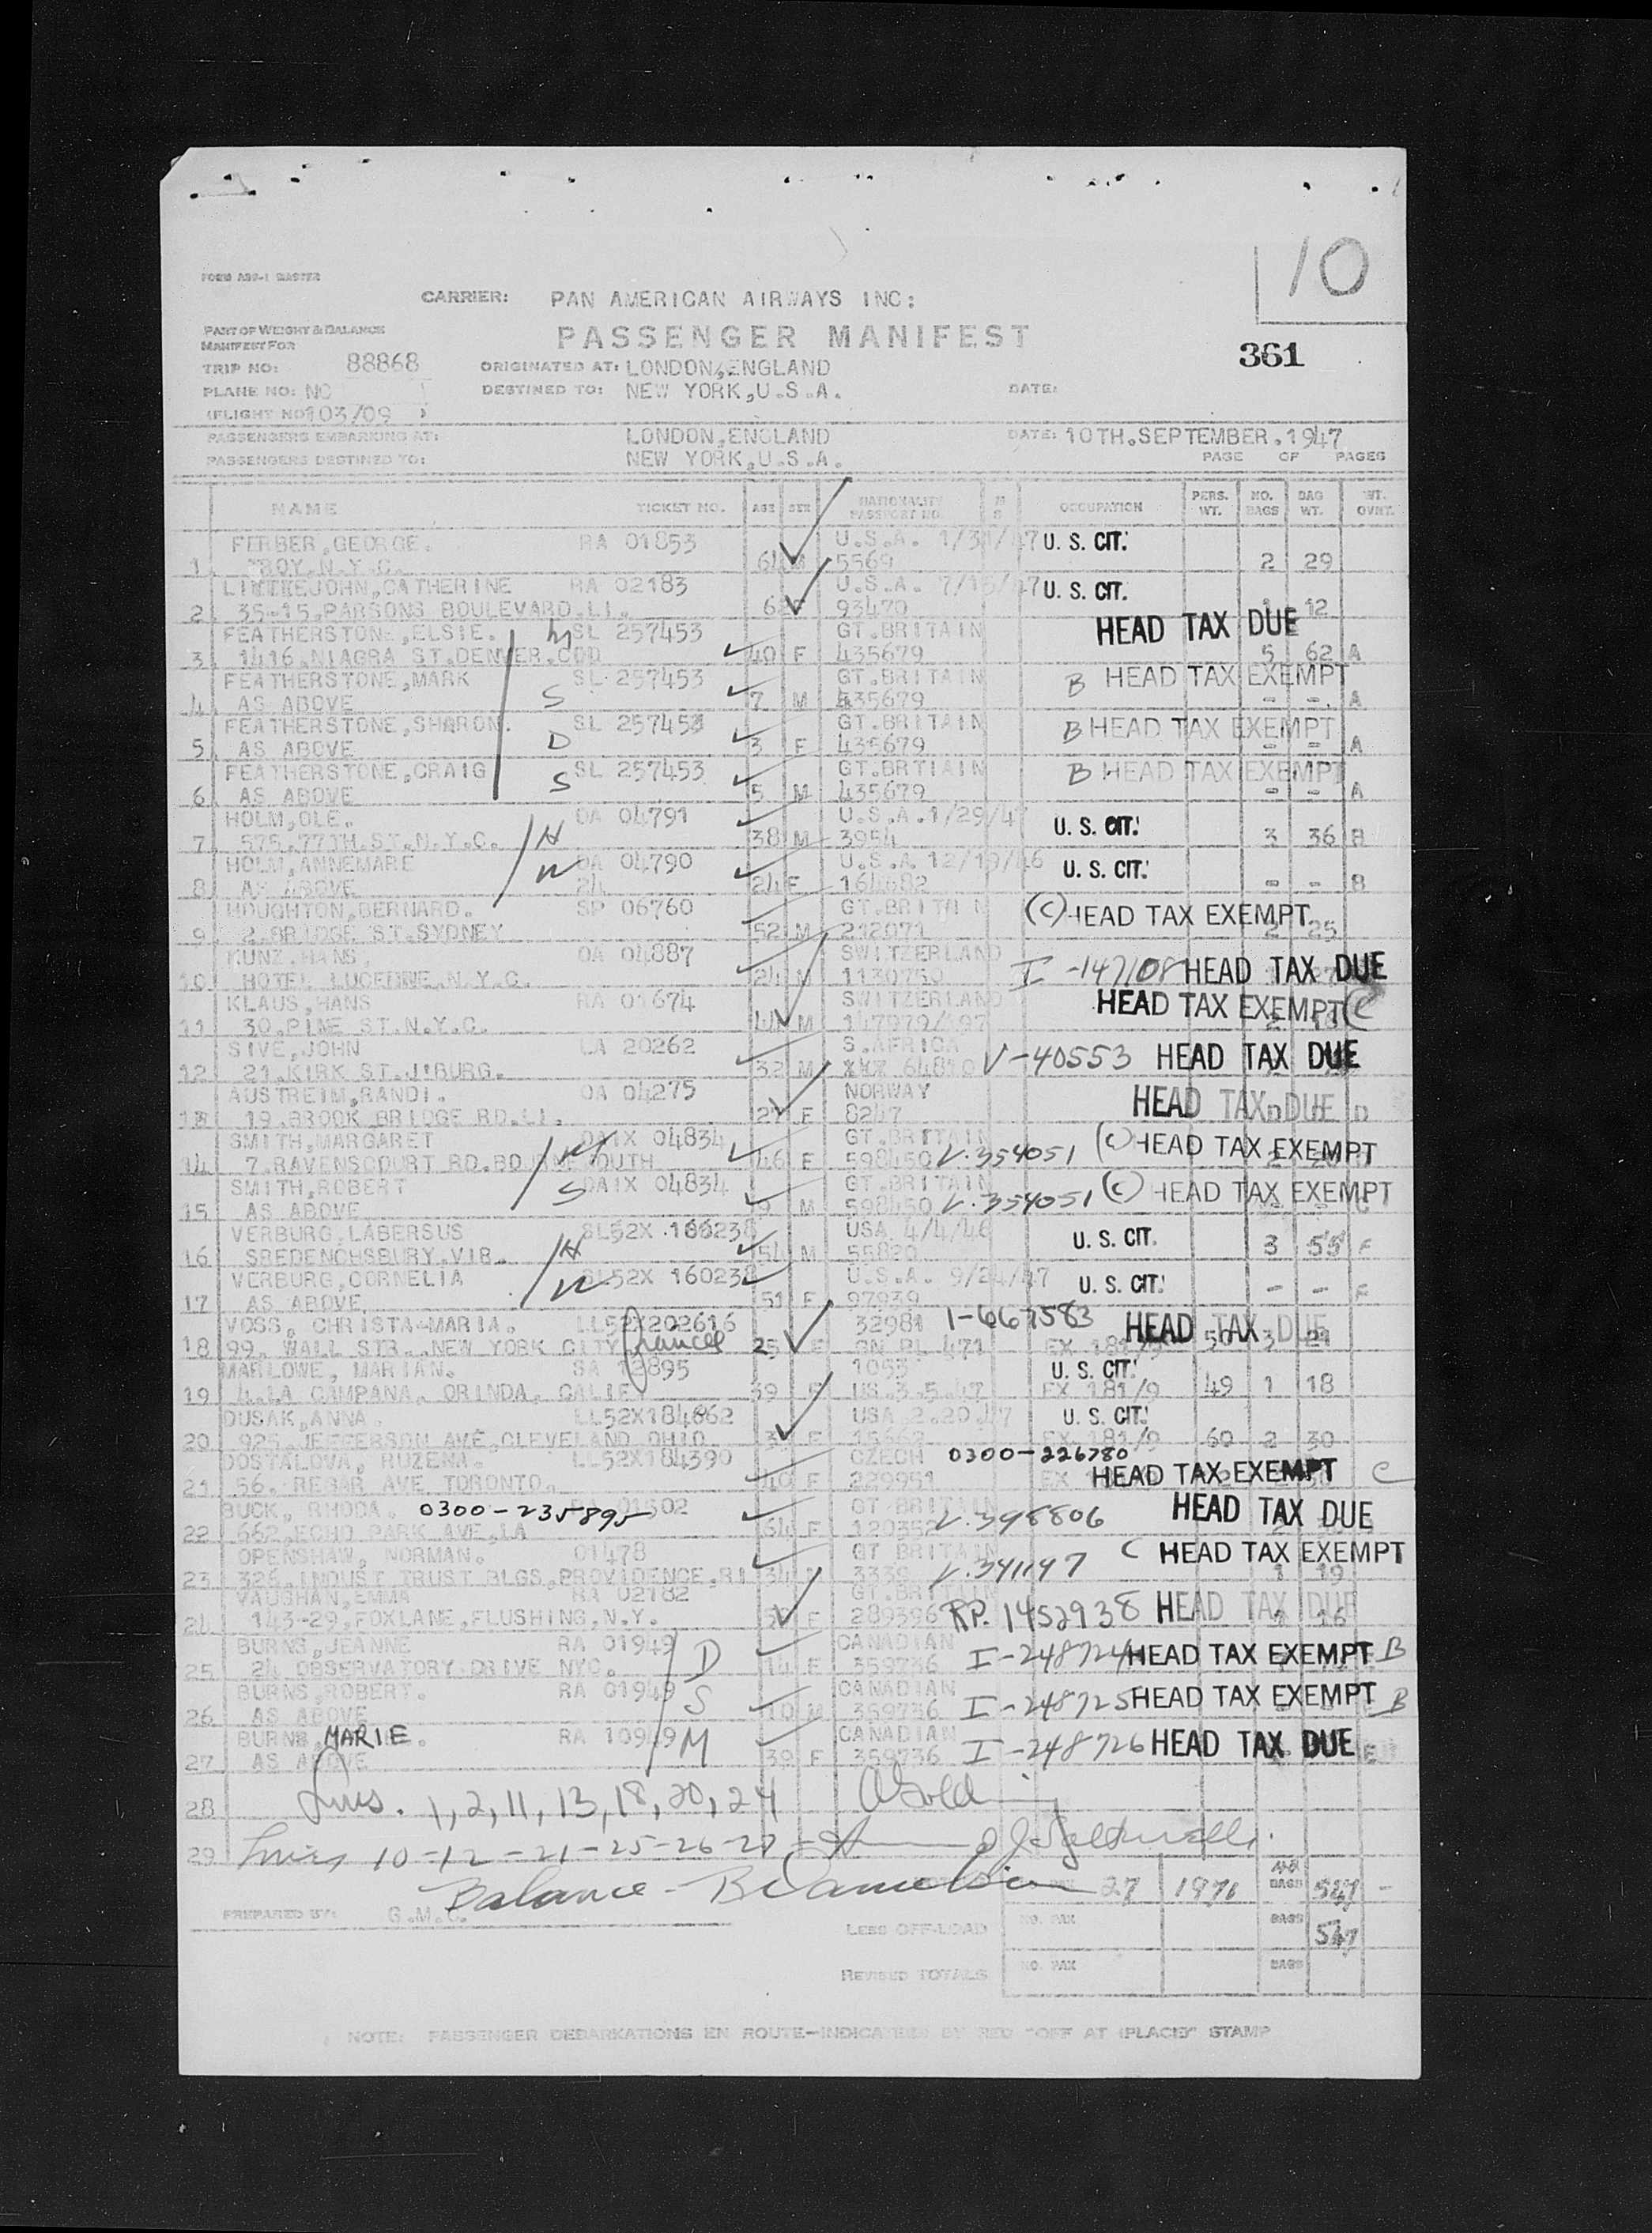 10
FORM ASP-1 MASTER
CARRIER: PAN AMERICAN AIRWAYS INC:
PART OF WEIGHT & BALANCE
MANIFEST FOR
PASSENGER MANIFEST
361
TRIP NO: 88868 ORIGINATED AT: LONDON,ENGLAND
PLANE NO: NC DESTINED TO: NEW YORK,U.S.A. DATE:
(FLIGHT NO 103/09 )
PASSENGERS EMBARKING AT: LONDON,ENGLAND DATE: 10TH.SEPTEMBER.1947
PASSENGERS DESTINED TO: NEW YORK,U.S.A. PAGE OF PAGES
NAME TICKET NO. AGE SEX NATIONALITY PASSPORT NO. OCCUPATION PERS. WT. NO. BAGS BAG WT. WT. OVNT.
FERBER,GEORGE. RA 01853 U.S.A. 1/31/47 U. S. CIT.
1 TROY.N.Y.C. 64 M 5569 2 29
LITTLEJOHN,CATHERINE RA 02183 U.S.A. 7/15/47 U. S. CIT.
2 35-15.PARSONS BOULEVARD.LI. F 93470 1 12
FEATHERSTONE,ELSIE. SL 257453 GT.BRITAIN HEAD TAX DUE
3 1416.NIAGRA ST.DENVER.COD 40 F 435679 5 62 A
FEATHERSTONE,MARK SL 257453 GT.BRITAIN B HEAD TAX EXEMPT
4 AS ABOVE S 7 M 435679 - - A
FEATHERSTONE,SHARON. SL 257453 GT.BRITAIN B HEAD TAX EXEMPT
5 AS ABOVE D 3 F 435679 - - A
FEATHERSTONE,CRAIG SL 257453 GT.BRTIAIN B HEAD TAX EXEMPT
6 AS ABOVE S 5 M 435679 - - A
HOLM,OLE. OA 04791 U.S.A.1/29/47 U. S. CIT.
7 575.77TH.ST.N.Y.C. H 38 M 3954 3 36 B
HOLM,ANNEMARE OA 04790 U.S.A 12/19/46 U. S. CIT.
8 AS ABOVE W 24 24 F 164682 - - B
HOUGHTON,BERNARD. SP 06760 GT.BRITAIN (C) HEAD TAX EXEMPT
9 2.BRIDGE ST.SYDNEY 52 M 212071 2 25
KUNZ.HANS. OA 04887 SWITZERLAND I-147108 HEAD TAX DUE
10 HOTEL LUCERNE.N.Y.C. 24 M 1130750
KLAUS,HANS RA 01674 SWITZERLAND HEAD TAX EXEMPT C
11 30.PINE ST.N.Y.C. M 147979/197
SIVE,JOHN LA 20262 S.AFRICA V-40553 HEAD TAX DUE
12 21.KIRK ST.J'BURG. 32 M XXX 64810
AUSTREIM,RANDI. OA 04275 NORWAY HEAD TAX DUE D
13 19.BROOK BRIDGE RD.LI. 27 F 8247
SMITH,MARGARET OAIX 04834 GT.BRITAIN (C) HEAD TAX EXEMPT
14 7.RAVENSCOURT RD.BOURNEMOUTH 46 F 598450 V.354051
SMITH,ROBERT OAIX 04834 GT.BRITAIN (C) HEAD TAX EXEMPT
15 AS ABOVE S 9 M 598450 V.354051
VERBURG,LABERSUS SL52X 166238 USA 4/4/46 U. S. CIT.
16 SREDENCHSBURY.VIR. H 54 M 55820 3 55 F
VERBURG,CORNELIA SL52X 160238 U.S.A. 9/24/47 U. S. CIT.
17 AS ABOVE W 51 F 97939 - - F
VOSS, CHRISTA-MARIA. LL52X202616 32981 1-667583 HEAD TAX DUE
18 99. WALL STR..NEW YORK CITY 25 F GN PL 471 EX 181/9 50 3 21
MARLOWE, MARIAN. SA 12895 1053 U. S. CIT.
19 4.LA CAMPANA. ORINDA. CALIF. 39 F US.3.5.47 EX 181/9 49 1 18
DUSAK,ANNA. LL52X184662 USA 2.20.47 U. S. CIT.
20 925.JEFFERSON AVE,CLEVELAND OHIO. F 15662 EX 181/9 60 2 30
DOSTALOVA, RUZENA. LL52X184390 CZECH 0300-226780
21 56. REGAR AVE TORONTO. 40 F 229951 EX HEAD TAX EXEMPT C
BUCK, RHODA. 0300-235895 01502 GT BRITAIN HEAD TAX DUE
22 662,ECHO PARK AVE,LA 64 F V.398806
OPENSHAW, NORMAN. 01478 GT BRITAIN C HEAD TAX EXEMPT
23 326.INDUST TRUST BLGS,PROVIDENCE.RI 34 M 3339 V.341147 1 19
VAUGHAN,EMMA RA 02182 GT.BRITAIN
24 143-29,FOXLANE,FLUSHING,N.Y. F 289396 RP. 1452938 HEAD TAX DUE 16
BURNS,JEANNE RA 01949 CANADIAN
25 24 OBSERVATORY DRIVE NYC. D 14 F 359736 I-248724 HEAD TAX EXEMPT B
BURNS,ROBERT. RA 01949 CANADIAN
26 AS ABOVE S 10 M 359736 I-248725 HEAD TAX EXEMPT B
BURNS MARIE. RA 10949 CANADIAN
27 AS ABOVE M 39 F 359736 I-248726 HEAD TAX DUE E
28 Lines. 1, 2, 11, 13, 18, 20, 24
29 Lines 10-12-21-25-26-27-
Balance - 27 1976 BAGS 547 -
PREPARED BY: G.M.C.
LESS OFF-LOAD NO. PAX BAGS 547
REVISED TOTALS NO. PAX BAGS
NOTE: PASSENGER DEBARKATIONS EN ROUTE-INDICATED BY RED "OFF AT (PLACE)" STAMP